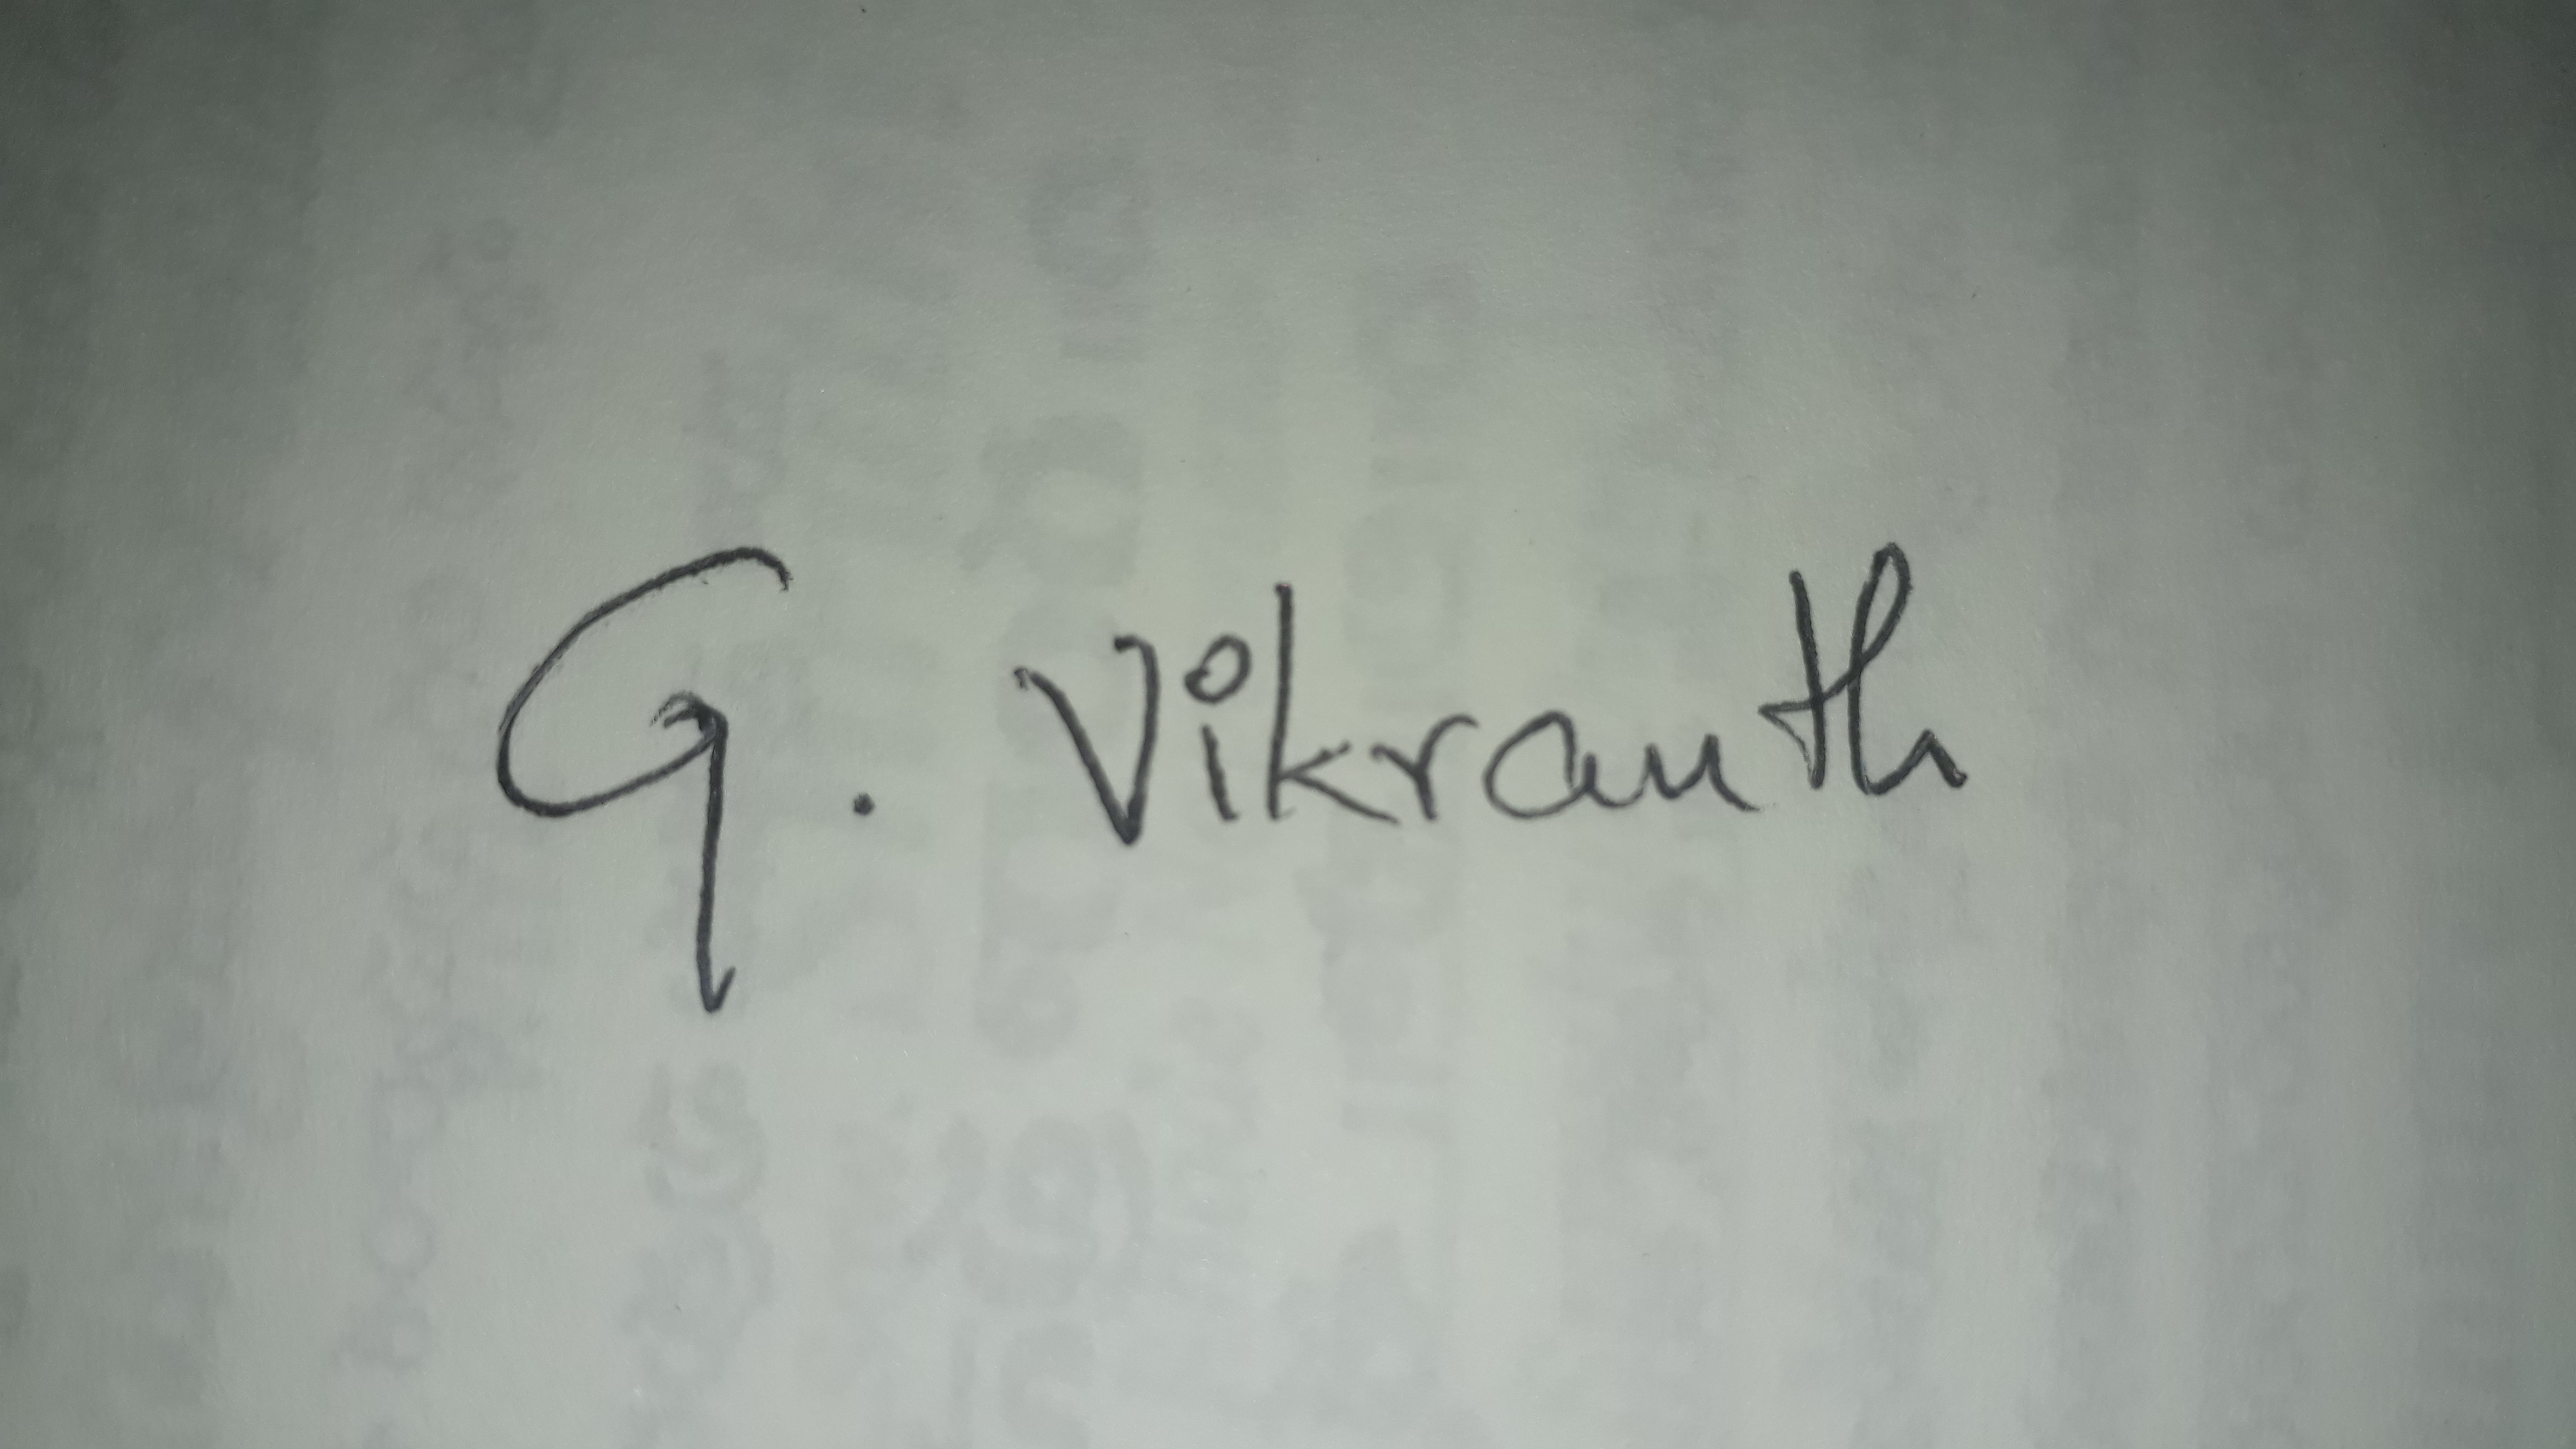 G. Vikranth